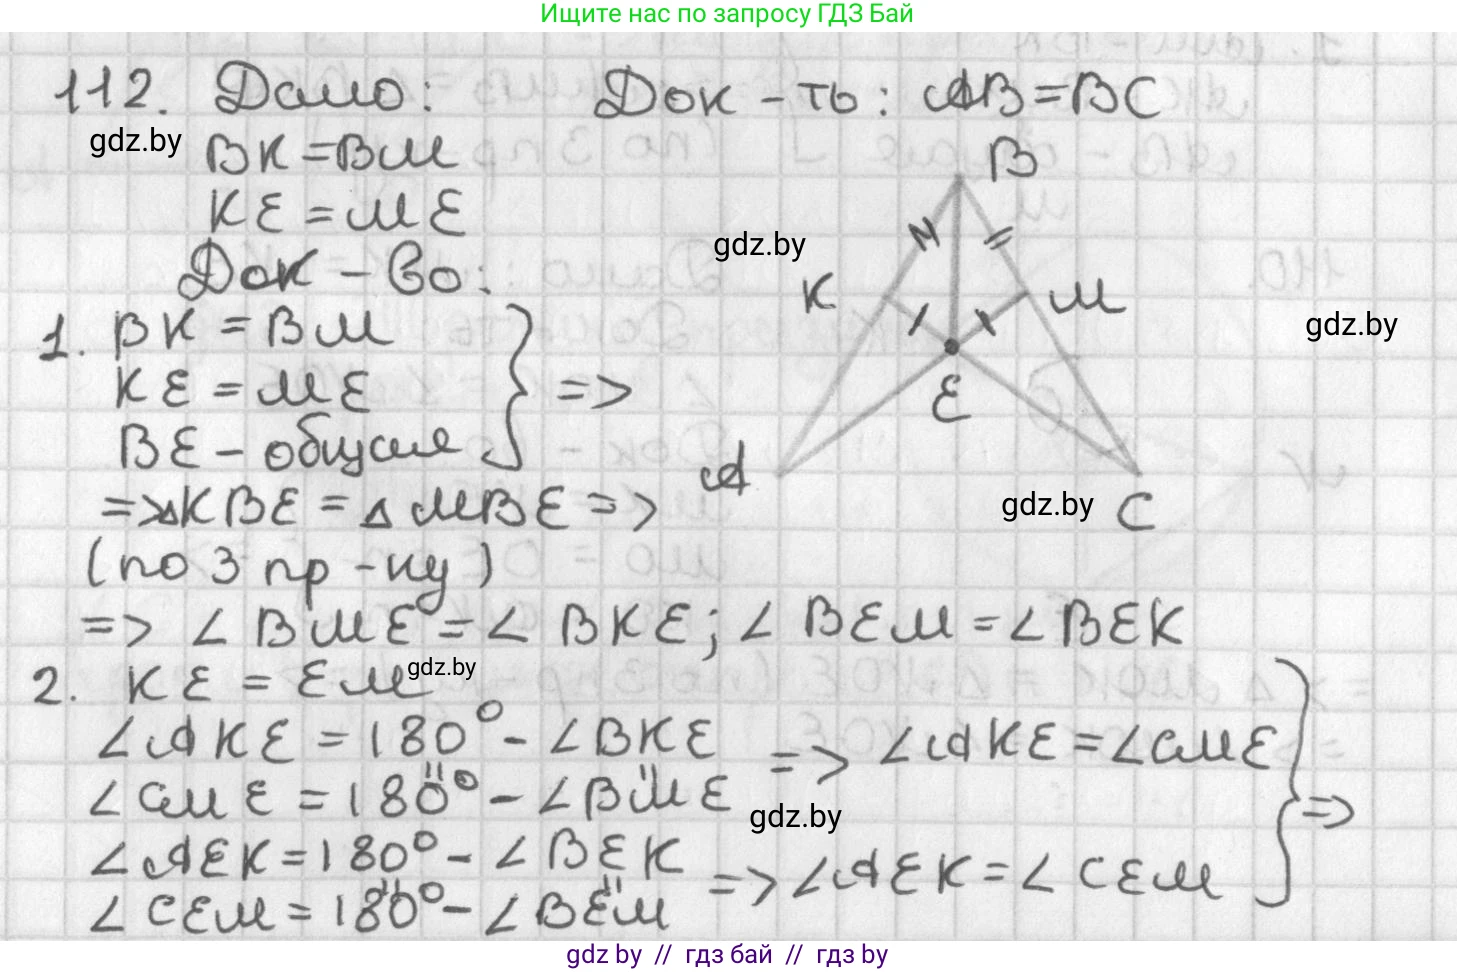 Ищите нас по запросу ГДЗ Бай
112. Дано: Док-ть: AB=BC
gdz.by
BK=BM
B
KE=ME
gdz.by
Док-во:
K
M
1. BK=BM
gdz.by
KE=ME
=>
E
BE-общая
A
=>ΔKBE=ΔMBE=>
gdz.by
C
(по 3 пр-ку)
=> ∠BME=∠BKE; ∠BEM=∠BEK
2. KE=EM
gdz.by
∠AKE=180°-∠BKE
=> ∠AKE=∠CME
∠CME=180°-∠BME
gdz.by
=>
∠AEK=180°-∠BEK
=> ∠AEK=∠CEM
∠CEM=180°-∠BEM
gdz.by // гдз бай // гдз by